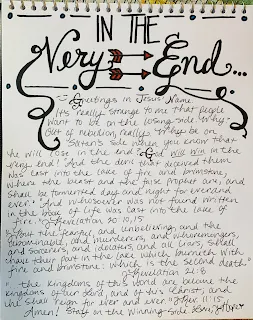 IN THE
Very End...
Greetings in Jesus' Name.
It's really strange to me that people
want to be on the losing side. Why?
Out of rebellion, really? Why be on
Satan's side when you know that
he will lose in the end? God will win in the
very end! "And the devil that deceived them
was cast into the lake of fire and brimstone,
where the beast and the false prophet are, and
shall be tormented day and night for ever and
ever." "And whosoever was not found written
in the book of life was cast into the lake of
fire." Revelation 20:10,15
"But the fearful, and unbelieving, and the
abominable, and murderers, and whoremongers,
and sorcerers, and idolaters, and all liars, shall
have their part in the lake which burneth with
fire and brimstone: which is the second death."
Revelation 21:8
"... the kingdoms of this world are become the
kingdoms of our Lord, and of his Christ; and
he shall reign for ever and ever." Rev. 11:15
Amen! Stay on the Winning Side. Love,